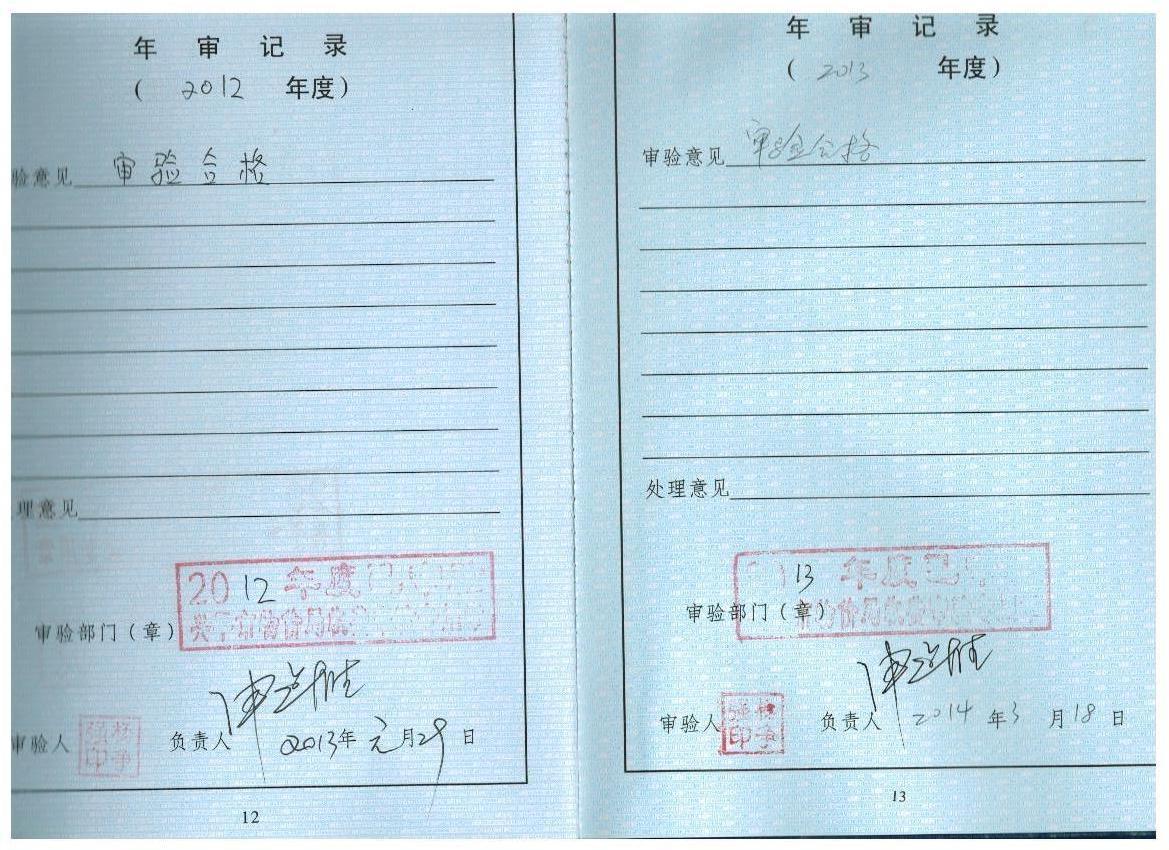 年审记录
(2012年度)
验意见 审验合格
理意见
2012年度
审验部门(章)
审验人
负责人
2013年元月29日
12
年审记录
(2013年度)
审验意见 审验合格
处理意见
13年度已
审验部门(章)
审验人
负责人
2014年3月18日
13